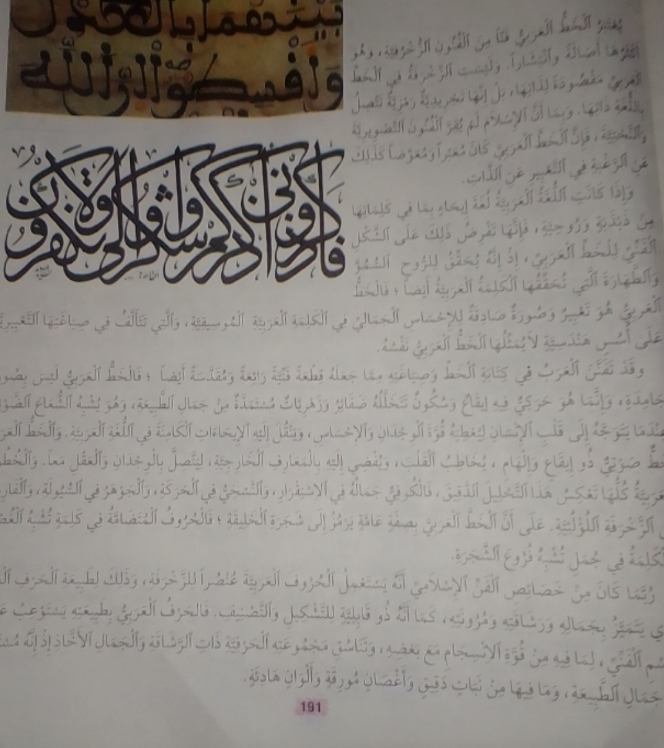 بينهما بالعدل
وأقسطوا إن الله
فاذكروني أذكركم واشكروا لي ولا تكفرون
يُعْتَبَرُ ٱلْخَطُّ ٱلْعَرَبِيُّ فَنًّا مِنَ ٱلْفُنُونِ ٱلزُّخْرُفِيَّةِ، وَهُوَ
أَكْثَرُهَا أَصَالَةً وَٱنْتِشَاراً. وَلَيْسَتِ ٱلزَّخْرَفَةُ فِي ٱلْخَطِّ
ٱلْعَرَبِيِّ مَقْصُودَةً لِذَاتِهَا، بَلْ إِنَّهَا تَجْرِيدِيَّةٌ رَمْزِيَّةٌ تَتَّصِلُ
بِٱللُّغَةِ ذَاتِهَا. وَبِمَا أَنَّ ٱلْإِسْلَامَ لَمْ يُقِرَّ ٱلْفُنُونَ ٱلتَّصْوِيرِيَّةَ
وَٱلنَّحْتِيَّةَ، فَإِنَّ ٱلْخَطَّ ٱلْعَرَبِيَّ كَانَ مُعَبِّراً وَمُعَوِّضاً كَذَلِكَ
عَنِ ٱلرَّغْبَةِ فِي ٱلتَّعْبِيرِ عَنِ ٱلذَّاتِ.
وَإِذَا كَانَتِ ٱللُّغَةُ ٱلْعَرَبِيَّةُ لُغَةَ إِيحَاءٍ بِمَا فِي كَلِمَاتِهَا
مِنْ ذَبْذَبَةٍ وَرُوحِيَّةٍ، فَإِنَّهَا تَفْرِضُ ذَلِكَ عَلَى ٱلشَّكْلِ
ٱلْفَنِّيِّ لِلْخَطِّ ٱلْعَرَبِيِّ، إِذْ إِنَّهُ يُحَقِّقُ لِلرُّوحِ ٱلسُّمُوَّ
وَٱلطَّهَارَةَ ٱلَّتِي تُحَقِّقُهَا ٱلْكَلِمَةُ ٱلْعَرَبِيَّةُ أَيْضاً ؛ فَالْخَطُّ
ٱلْعَرَبِيُّ هُوَ تَعْبِيرٌ وَصُورَةٌ صَادِقَةٌ لِلْإِحْسَاسِ ٱلْجَمَالِيِّ فِي ٱلْكَلِمَةِ ٱلْعَرَبِيَّةِ ٱلْمُوسِيقِيَّةِ، وَٱلَّتِي تَتَأَلَّفُ فِي صِيَاغَتِهَا ٱلتَّعْبِيرِيَّ
عَلَى أُسُسٍ هَنْدَسِيَّةٍ لَا يُمَثِّلُهَا ٱلْخَطُّ ٱلْعَرَبِيُّ نَفْسُهُ.
وَقَدْ تَفَنَّنَ ٱلْعَرَبُ فِي كِتَابَةِ ٱلْخَطِّ وَصِيَاغَتِهِ مِمَّا جَعَلَهُ قِطْعَةً فَنِّيَّةً رَائِعَةً وَمُقَدَّسَةً أَيْضاً ؛ فَالْخَطُّ ٱلْعَرَبِيُّ لَيْسَ بِصُو
جَامِدَةٍ، وَإِنَّمَا هُوَ حَرَكِيٌّ فِيهِ إِيقَاعٌ وَسُكُونٌ تَتَخَلَّلُهُ ضَفَائِرُ وَزَهْرِيَّاتٌ مُسْتَمَدَّةٌ مِنْ جَمَالِ ٱلطَّبِيعَةِ، وَهُوَ يُشْبِهُ ٱلشُّعَاعَ ٱلضَّوْ
عِنْدَمَا يَتَوَجَّهُ إِلَى قَلْبِ ٱلْإِنْسَانِ لِيُعْطِيَهُ قُوَّةَ ٱلْوِجْدَانِ وَٱلْإِحْسَاسِ، وَيَنْقُلَ إِلَيْهِ ٱلْإِيحَاءَاتِ ٱلْكَامِنَةَ فِي ٱللُّغَةِ ٱلْعَرَبِيَّةِ. وَٱلْخَطُّ ٱلْعَرَ
خَطٌّ صَوْتِيٌّ ذُو إِيقَاعٍ وَإِلْهَامٍ، يُخَاطِبُ ٱلْقَلْبَ، وَيُفْضِي إِلَيْهِ بِٱلْمَعَارِفِ ٱلْخَارِجِيَّةِ، لِيَتَّصِلَ بِٱلْوِجْدَانِ وَٱلْعَقْلِ مَعاً. وَٱلْخُطُو
عَرَبِيَّةُ كُلُّهَا تَعْكِسُ هَذَا ٱلتَّحْلِيلَ ٱلدَّقِيقَ، فَالْكُوفِيُّ جَمَالُهُ فِي ٱلِاسْتِقْرَارِ، وَٱلنَّسْخِيُّ فِي ٱلْحَرَكَةِ، وَٱلْجَوْهَرُ فِي ٱلسُّيُولَةِ، وَٱلْفَارِ
ٱلزَّخْرَفَةِ ٱللَّوْلَبِيَّةِ. عَلَى أَنَّ ٱلْخَطَّ ٱلْعَرَبِيَّ بِصِفَةٍ عَامَّةٍ يَرْمُزُ إِلَى شَجَرَةِ ٱلْخَلِيقَةِ ؛ فَالْحُرُوفُ ٱلْمُتَضَامَّةُ فِي كَلِمَةٍ تُشْبِهُ ٱلْغُصْ
لْكَلِمَةُ فِي جُمَلٍ تُشْبِهُ فُرُوعَ ٱلشَّجَرَةِ.
رُبَّمَا كَانَ مِنْ خَصَائِصِ ٱلْفَنِّ ٱلْإِسْلَامِيِّ أَنَّهُ يَسْتَعْمِلُ ٱلْحُرُوفَ ٱلْعَرَبِيَّةَ عُنْصُراً لِلزَّخْرَفَةِ، وَذَلِكَ لِطَبِيعَةِ ٱلْحَرْفِ ٱلْ
ي يَتَمَيَّزُ بِجَمَالِهِ وَرَشَاقَتِهِ وَمُرُونَتِهِ، كَمَا أَنَّهُ ذُو قَابِلِيَّةٍ لِلتَّشْكِيلِ وَٱلتَّصْنِيفِ. فَالْحَرْفُ ٱلْعَرَبِيُّ بِطَبِيعَتِهِ يَسْتَوْعِبُ عَ
سْمِ ٱلْفَنِّيِّ، لِمَا فِيهِ مِنْ قُوَّةِ ٱلِانْسِجَامِ مَعَ بَعْضِهِ، وَتَنَاسُقِ مَجْمُوعَتِهِ ٱلْحَرْفِيَّةِ ذَاتِ ٱلرَّشَاقَةِ وَٱلْجَمَالِ ٱلْأَخَّاذِ إِذْ إِنَّهُ مُسْتَ
جَمَالِ ٱلطَّبِيعَةِ، وَمَا فِيهَا مِنْ نَبَاتٍ دَقِيقٍ وَأَغْصَانٍ مُورِقَةٍ وَأَلْوَانٍ هَادِئَةٍ.
191